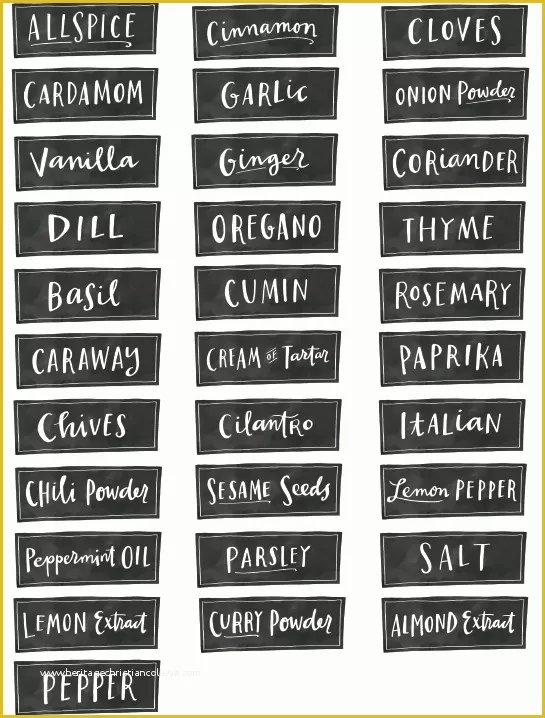 ALLSPICE
Cinnamon
CLOVES
CARDAMOM
GARLic
ONION Powder
Vanilla
Ginger
CORianDER
DILL
OREGANO
THYME
Basil
CUMIN
ROSEMARY
CARAWAY
CREAM OF Tartar
PAPRIKA
ChiVES
Cilantro
ITALiAN
CHili Powder
SESAME Seeds
Lemon PEPPER
Peppermint OIL
PARSLEY
SALT
LEMON Extract
CURRY Powder
ALMOND Extract
www.heritagechristiancollege.com
PEPPER